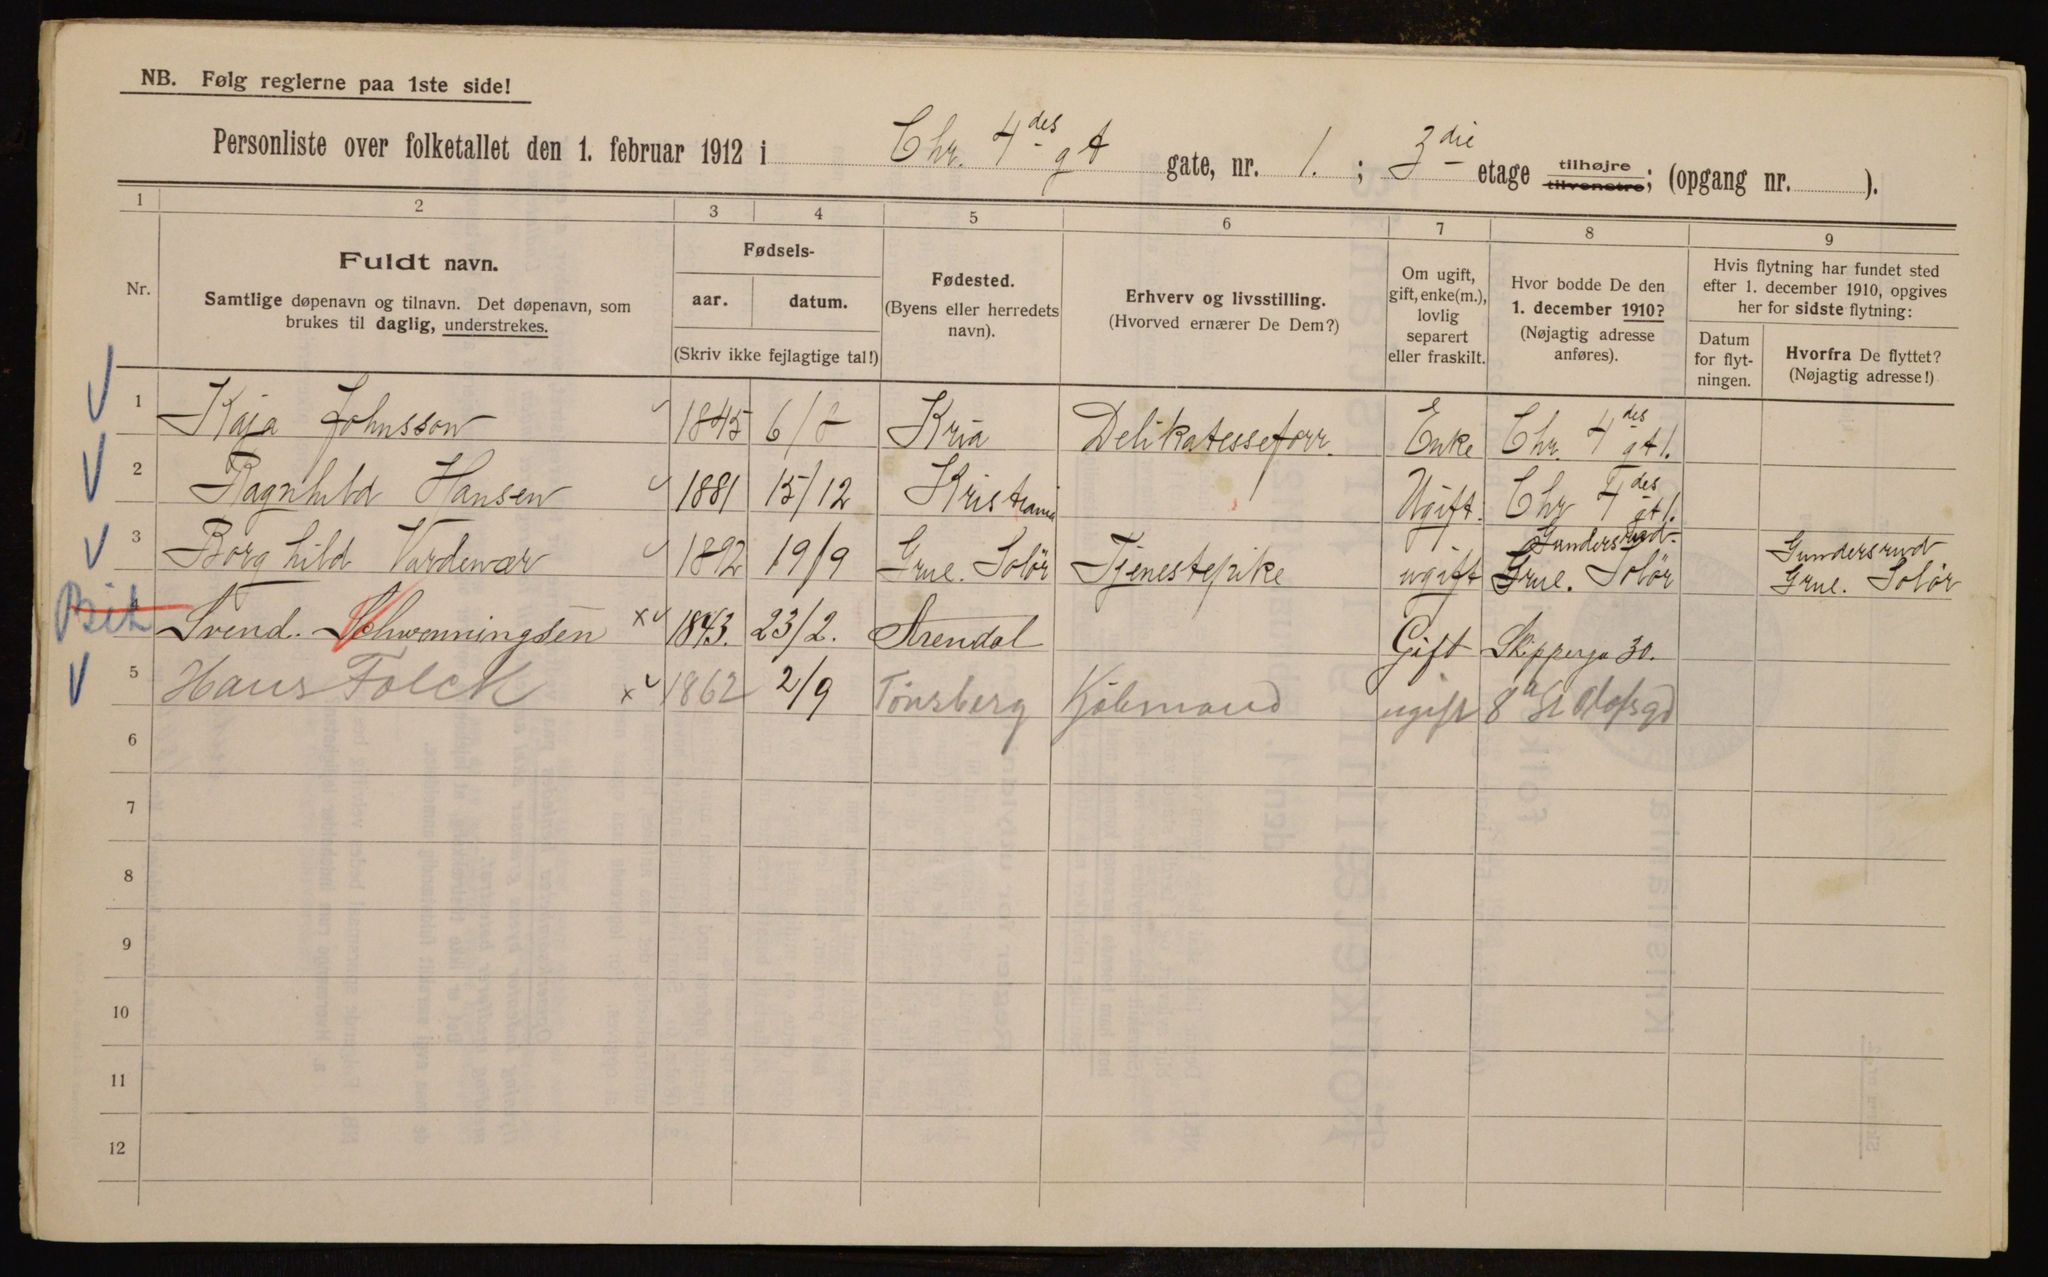 NB. Følg reglerne paa 1ste side!
Personliste over folketallet den 1. februar 1912 i Chr. 4des gt gate, nr. 1. ; 3die etage tilhøjre tilvenstre; (opgang nr. ).
1 2 3 4 5 6 7 8 9
Nr.
Fuldt navn.
Samtlige døpenavn og tilnavn. Det døpenavn, som
brukes til daglig, understrekes.
Fødsels-
aar. datum.
(Skriv ikke fejlagtige tal!)
Fødested.
(Byens eller herredets
navn).
Erhverv og livsstilling.
(Hvorved ernærer De Dem?)
Om ugift,
gift, enke(m.),
lovlig
separert
eller fraskilt.
Hvor bodde De den
1. december 1910?
(Nøjagtig adresse
anføres).
Hvis flytning har fundet sted
efter 1. december 1910, opgives
her for sidste flytning:
Datum
for flyt-
ningen.
Hvorfra De flyttet?
(Nøjagtig adresse!)
1 Kaja Johnsson 1845 6/8 Kria Delikatesseforr. Enke Chr. 4des gt 1.
2 Ragnhild Hansen 1881 15/12 Kristiania Ugift. Chr 4des gt 1.
3 Borghild Vardevær 1892 19/9 Grue. Solør Tjenestepike ugift Gundersrud Grue. Solør Gundersrud Grue. Solør
4 Svend. Schwenningsen x 1843. 23/2. Arendal Gift Skipperga 30.
5 Hans Folck x 1862 2/9 Tønsberg Kjøbmand ugift 8a St Olafsgd
6
7
8
9
10
11
12